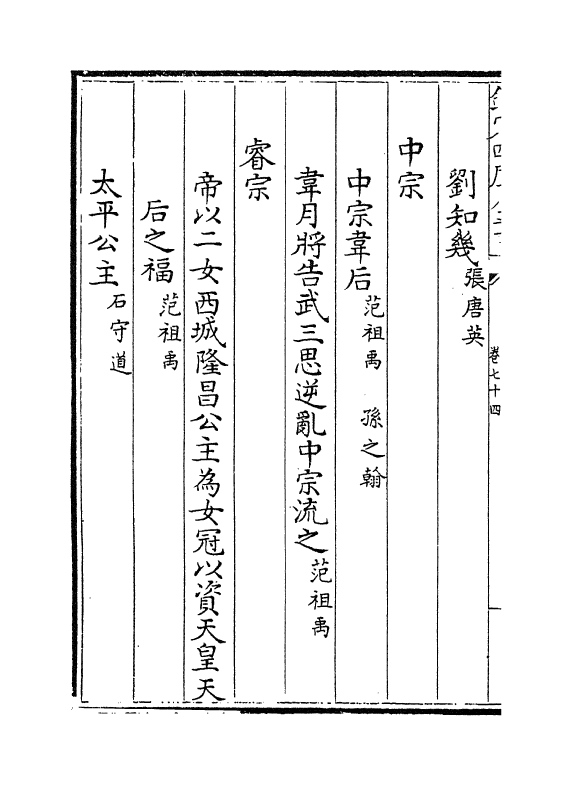 劉知幾張唐英
中宗
中宗韋后范祖禹 孫之翰
韋月將告武三思逆亂中宗流之范祖禹
睿宗
帝以二女西城隆昌公主為女冠以資天皇天
后之福范祖禹
太平公主石守道
卷七十四